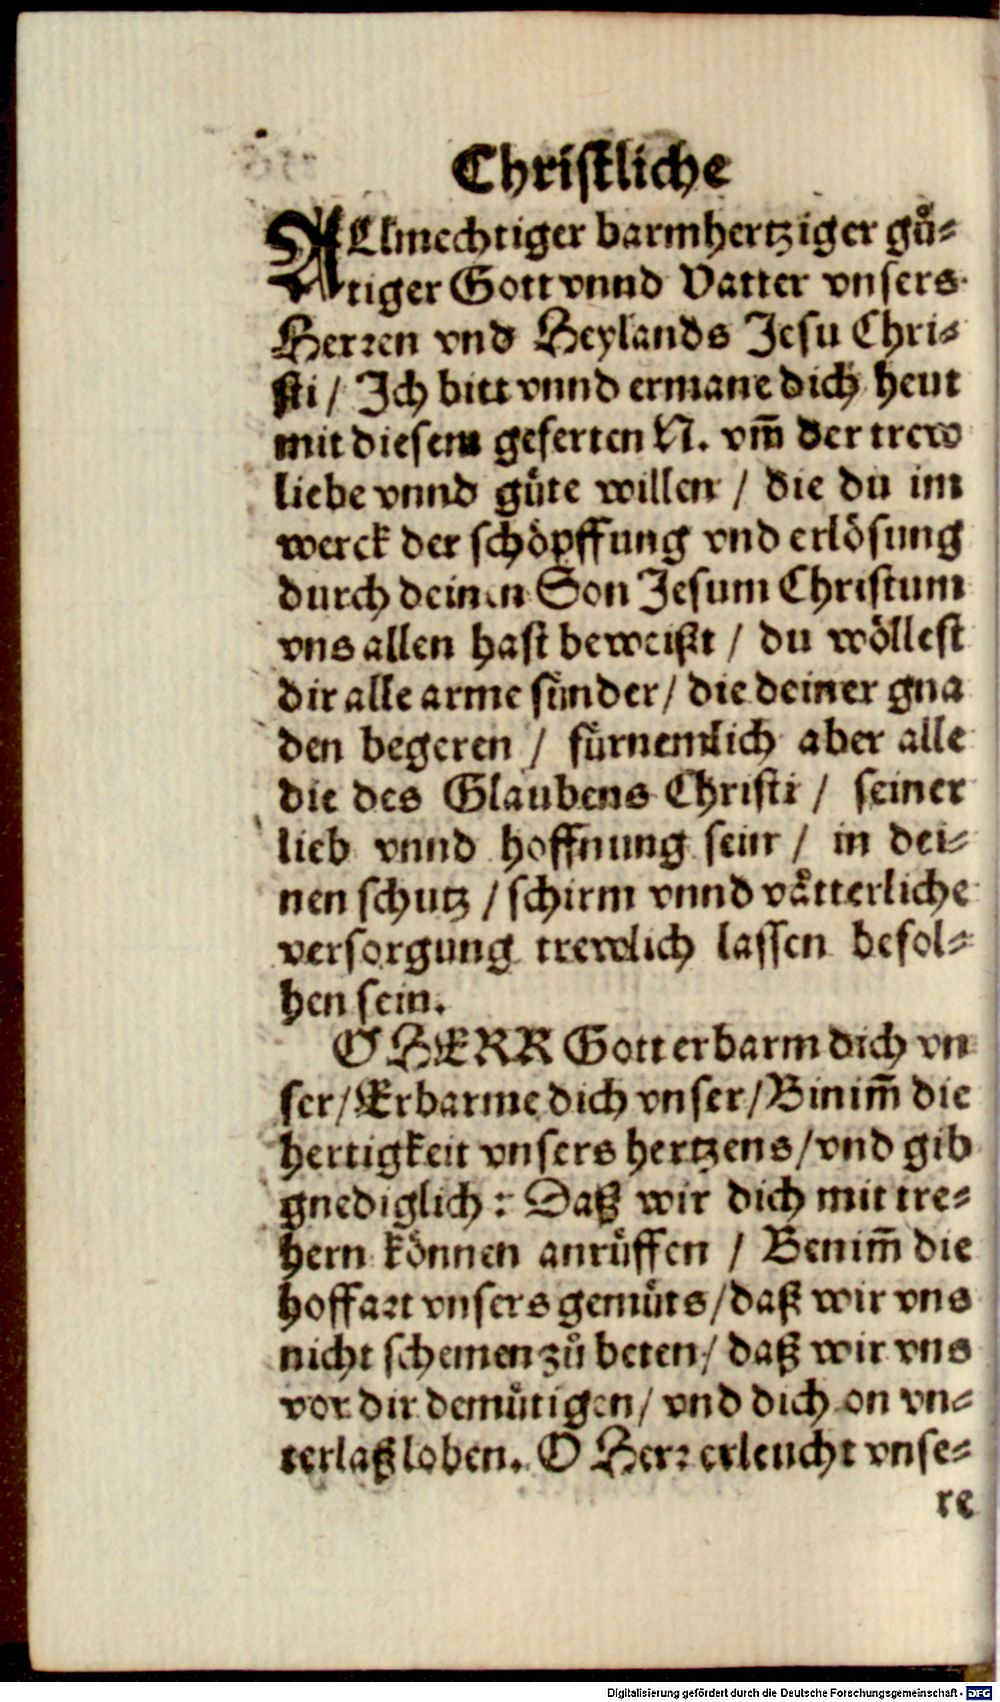 Christliche
ALlmechtiger barmhertziger gů⸗
tiger Gott vnnd Vatter vnsers
Herren vnd Heylands Jesu Chri⸗
sti / Ich bitt vnnd ermane dich heut
mit diesem geferten N. vm̃ der trew
liebe vnnd güte willen / die du im
werck der schöpffung vnd erlösung
durch deinen Son Jesum Christum
vns allen hast beweißt / du wöllest
dir alle arme sünder / die deiner gna
den begeren / fürnemlich aber alle
die des Glaubens Christi / seiner
lieb vnnd hoffnung sein / in dei⸗
nen schutz / schirm vnnd vätterliche
versorgung trewlich lassen befol⸗
hen sein.
O HERR Gott erbarm dich vn
ser / Erbarme dich vnser / Binim̃ die
hertigkeit vnsers hertzens / vnd gib
gnediglich : Daß wir dich mit tre⸗
hern können anrüffen / Benim̃ die
hoffart vnsers gemüts / daß wir vns
nicht schemen zů beten / daß wir vns
vor dir demütigen / vnd dich on vn⸗
terlaß loben. O Herr erleucht vnse⸗
re
Digitalisierung gefördert durch die Deutsche Forschungsgemeinschaft - DFG